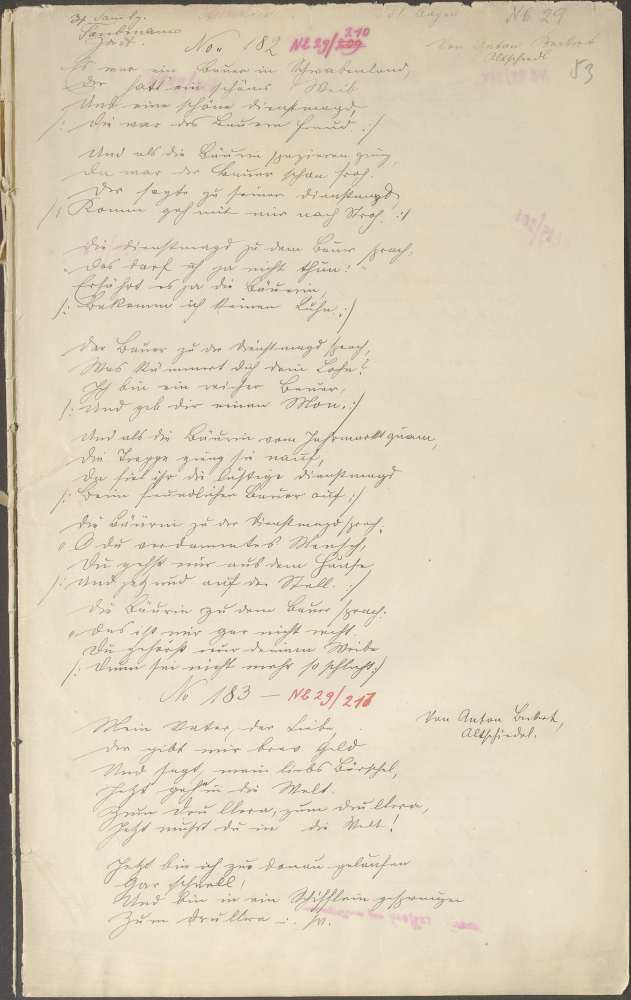 NB 29
No. 182 NB 29/209 210
Von Anton Beckert
Altschiedel
83
Es war ein Bauer in Schwabenland,
Der hatt ein schönes Weib
Und eine schöne Dienstmagd,
/: Die war des Bauern Freud :/
Und als die Bäurin spazieren ging,
Da war der Bauer schon froh.
Der sagte zu seiner Dienstmagd,
/: Komm geh mit mir nach Stroh. :/
Die Dienstmagd zu dem Bauer sprach:
Das darf ich ja nicht thun:
Erfährt es ja die Bäuerin,
/: Bekomm ich keinen Luhn :/
Der Bauer zu der Dienstmagd sprach,
Was kümmert dich dein Lohn?
Ich bin ein reicher Bauer,
/: Und geb dir einen Mon. :/
Und als die Bäurin vom Jahrmarkt quam,
Die Treppe ging sie nauf,
Da fiel ihr die lustige Dienstmagd
/: Beim freundlichen Bauer auf :/
Die Bäurin zu der Dienstmagd sprach:
O du verdammtes Mensch,
Du gehst mir aus dem Hause,
/: Und jetzund auf der Stell. :/
Die Bäurin zu dem Bauer sprach:
Das ist mir gar nicht recht
Du gehörst nur deinem Weibe
/: Drum sei nicht mehr so schlecht :/
No 183 — NB 29/211
Von Anton Beckert,
Altschiedel.
Mein Vater, der Liebe,
Der gibt mir brav Geld
Und sagt, mein liebs Bürschel,
Jetzt geh in die Welt.
Zum Drullera, zum Drullera,
Jetzt mußt du in die Welt!
Jetzt bin ich zur Donau gelaufen
Gar schnell,
Und bin in ein Schifflein gesprungen
Zum Drullera